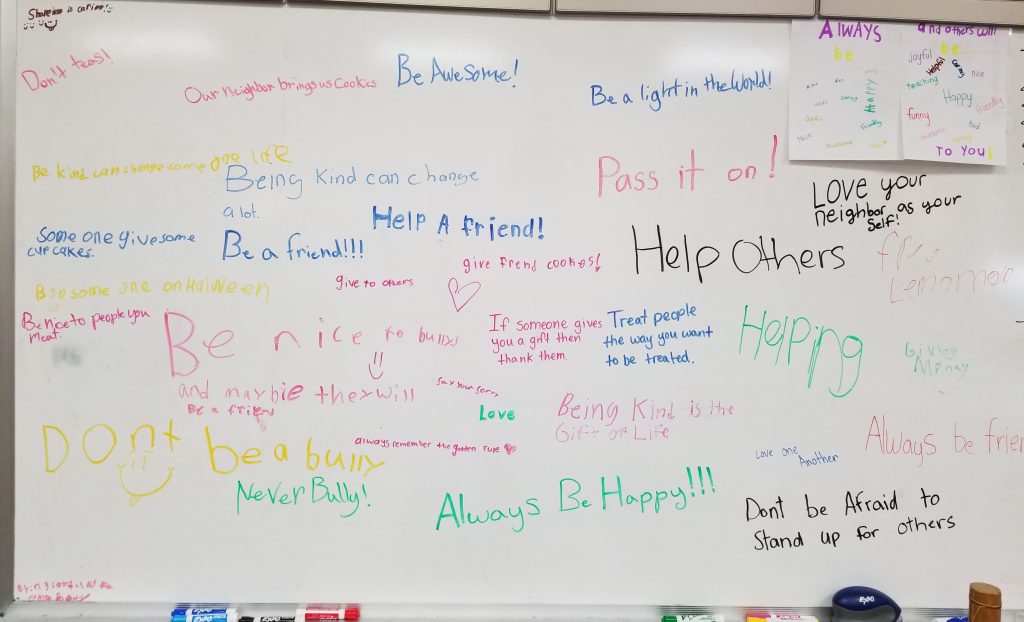 Shareing is caring!
Don't teas!
Our Neighbor brings us Cookies
Be Awesome!
Be a light in the World!
Always
be
Happy
Friendly
awesome
Nice
and others will
be
joyful
Helpful
nice
teaching
Happy
friendly
funny
Kind
awesome
TO YOU!
Be kind can change some one life
Being Kind can change
a lot.
Pass it on!
LOVE your
neighbor as your
Self!
Some one give some
cup cakes.
Be a friend!!!
Help A friend!
give frend cookies!
Help Others
Lemomeid
Boo some one on Halween
give to others
Be nice to people you
meat.
Be nice to bullys
and maybie they will
Be a friend
If someone gives
you a gift then
thank them.
Treat people
the way you want
to be treated.
Helping
Giving
Money
say your sorry
Love
Being Kind is the
Gift of Life
Always be frien
DONt be a bully
always remember the golden rule
Love one
Another
Never Bully!
Always Be Happy!!!
Dont be Afraid to
Stand up for others
EXPO